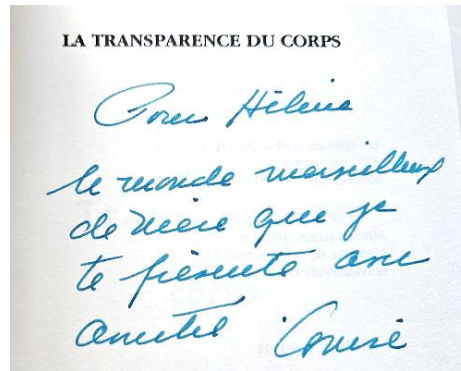 LA TRANSPARENCE DU CORPS
Pour Hélène
le monde merveilleux
de Mère que je
te présente avec
amitié Louise